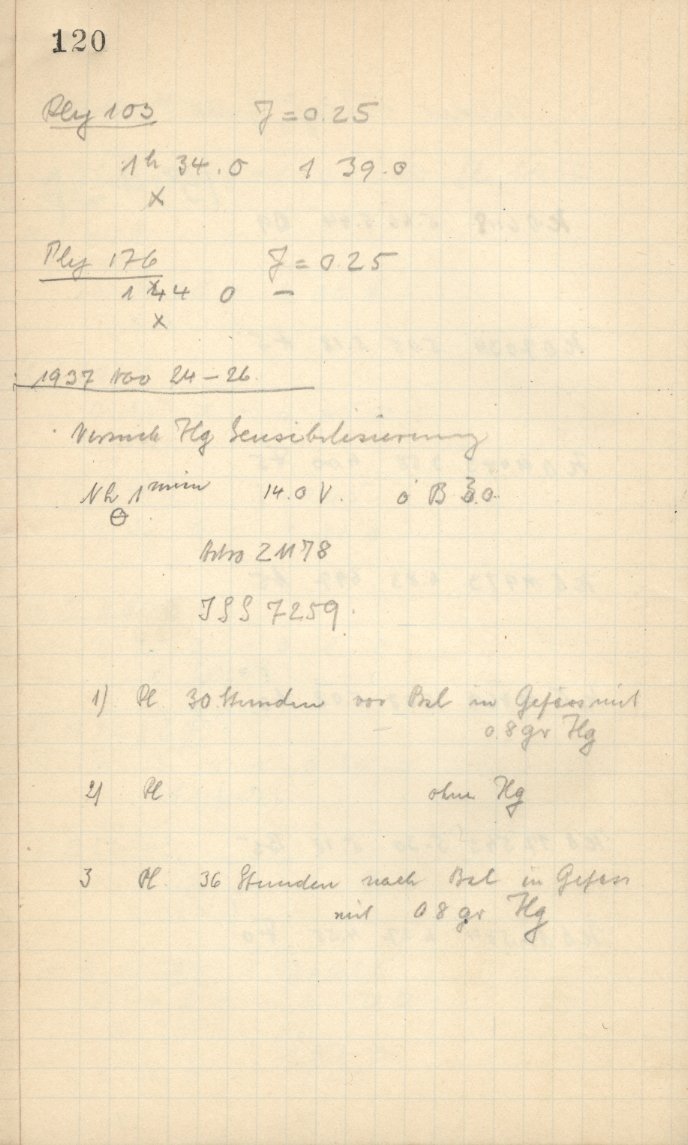 120
Ply 103 J = 0.25
1h 34.0 1 39.0
x
Ply 176 J = 0.25
1 44 0 –
x
1937 Nov 24–26
Versuch Hg Sensibilisierung
1min 14.0 V. B 30
Astro 21178
ISS 7259.
1) Pl 30 Stunden vor Bel in Gefäss mit
0.8 gr Hg
2) Pl ohne Hg
3 Pl 36 Stunden nach Bel in Gefäss
mit 0 8 gr Hg